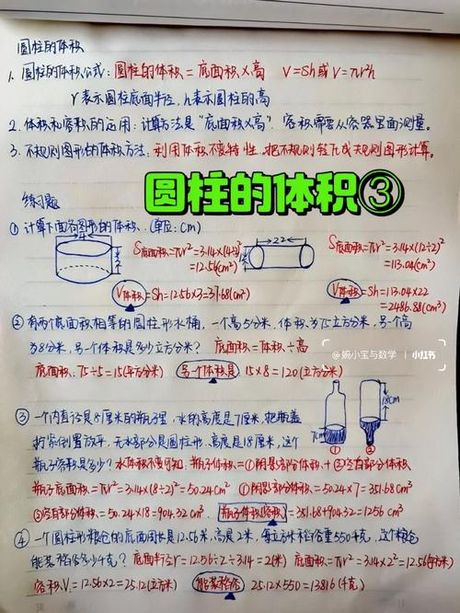 圆柱的体积
1. 圆柱的体积公式：圆柱的体积＝底面积×高　V＝Sh或V＝πr²h
r表示圆柱底面半径，h表示圆柱的高
2. 体积和容积的运用：计算方法是“底面积×高”，容积需要从容器里面测量。
3. 不规则图形的体积方法：利用体积不变特性，把不规则转化成规则图形计算。
圆柱的体积③
练习题
① 计算下面有图形的体积。(单位：cm)
S底面积＝πr²＝3.14×(4÷2)²
＝12.56(cm²)
V体积＝Sh＝12.56×3＝37.68(cm³)
22
S底面积＝πr²＝3.14×(12÷2)²
＝113.04(cm²)
V体积＝Sh＝113.04×22
＝2486.88(cm³)
② 有两个底面积相等的圆柱形水桶，一个高5分米，体积是75立方分米，另一个高
为8分米，另一个体积是多少立方分米？ 底面积＝体积÷高
底面积：75÷5＝15(平方分米)　另一个体积是　15×8＝120(立方分米)
@婉小宝与数学 | 小红书
③ 一个内直径是8厘米的瓶子里，水的高度是7厘米，把瓶盖
拧紧倒置放平，无水部分是圆柱形，高度是18厘米，这个
瓶子容积是多少？ 水体积不变可知：瓶子体积＝①阴影部分体积＋②空白部分体积
7cm
18cm
①
②
瓶子底面积＝πr²＝3.14×(8÷2)²＝50.24cm²　①阴影部分体积＝50.24×7＝351.68cm³
②空白部分体积＝50.24×18＝904.32cm³　瓶子体积(容积)＝351.68+904.32＝1256cm³
④ 一个圆柱形粮仓的底面周长是12.56米，高是2米，每立方米稻谷重550千克，这个粮仓
能装稻谷多少千克？ 底面半径r＝12.56÷2÷3.14＝2(米)　底面积＝πr²＝3.14×2²＝12.56(平方米)
容积V＝12.56×2＝25.12(立方米)　能装稻谷　25.12×550＝13816(千克)